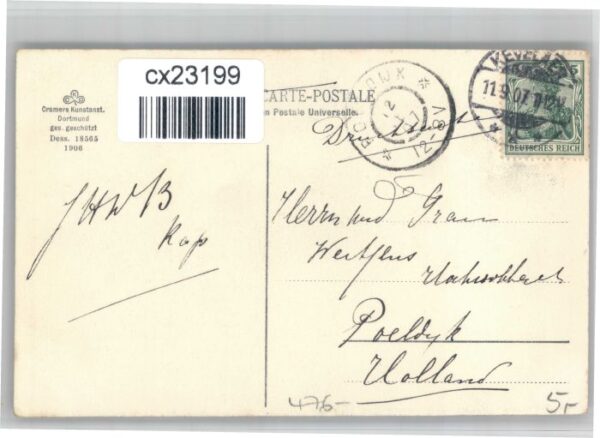 cx23199
Cramers Kunstanst.
Dortmund
ges. geschützt
Dess. 18565
1906
CARTE-POSTALE
n Postale Universelle.
KEVELAE
11.9.07.
DEUTSCHES REICH
12
12-8V
JHWB
Kap
Herrn und Frau
Poeldyk
Holland
476-
5,-